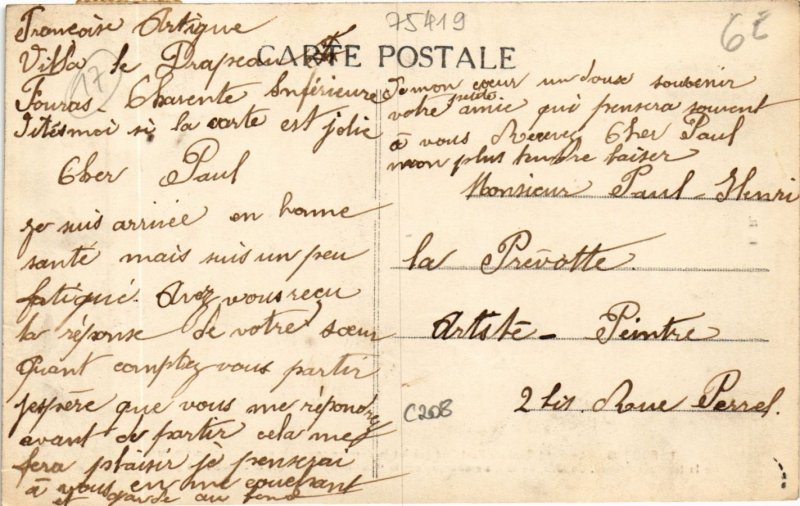 Françoise Artigue
Villa le Drapeau
Fouras Charente Inférieure
Dites moi si la carte est jolie
Cher Paul
je suis arrivée en bonne
santé mais suis un peu
fatigué. Avez vous reçu
la réponse de votre sœur
Quant comptez vous partir
jespère que vous me répondrez
avant de partir cela me
fera plaisir je penserai
à vous en me couchant
et garde au fond
17
CARTE POSTALE
75419
6E
de mon cœur un doux souvenir
votre petite amie qui pensera souvent
à vous Recevez Cher Paul
mon plus tendre baiser
Monsieur Paul-Henri
la Prévotte
Artiste-Peintre
2 bis. Rue Perrel.
C208